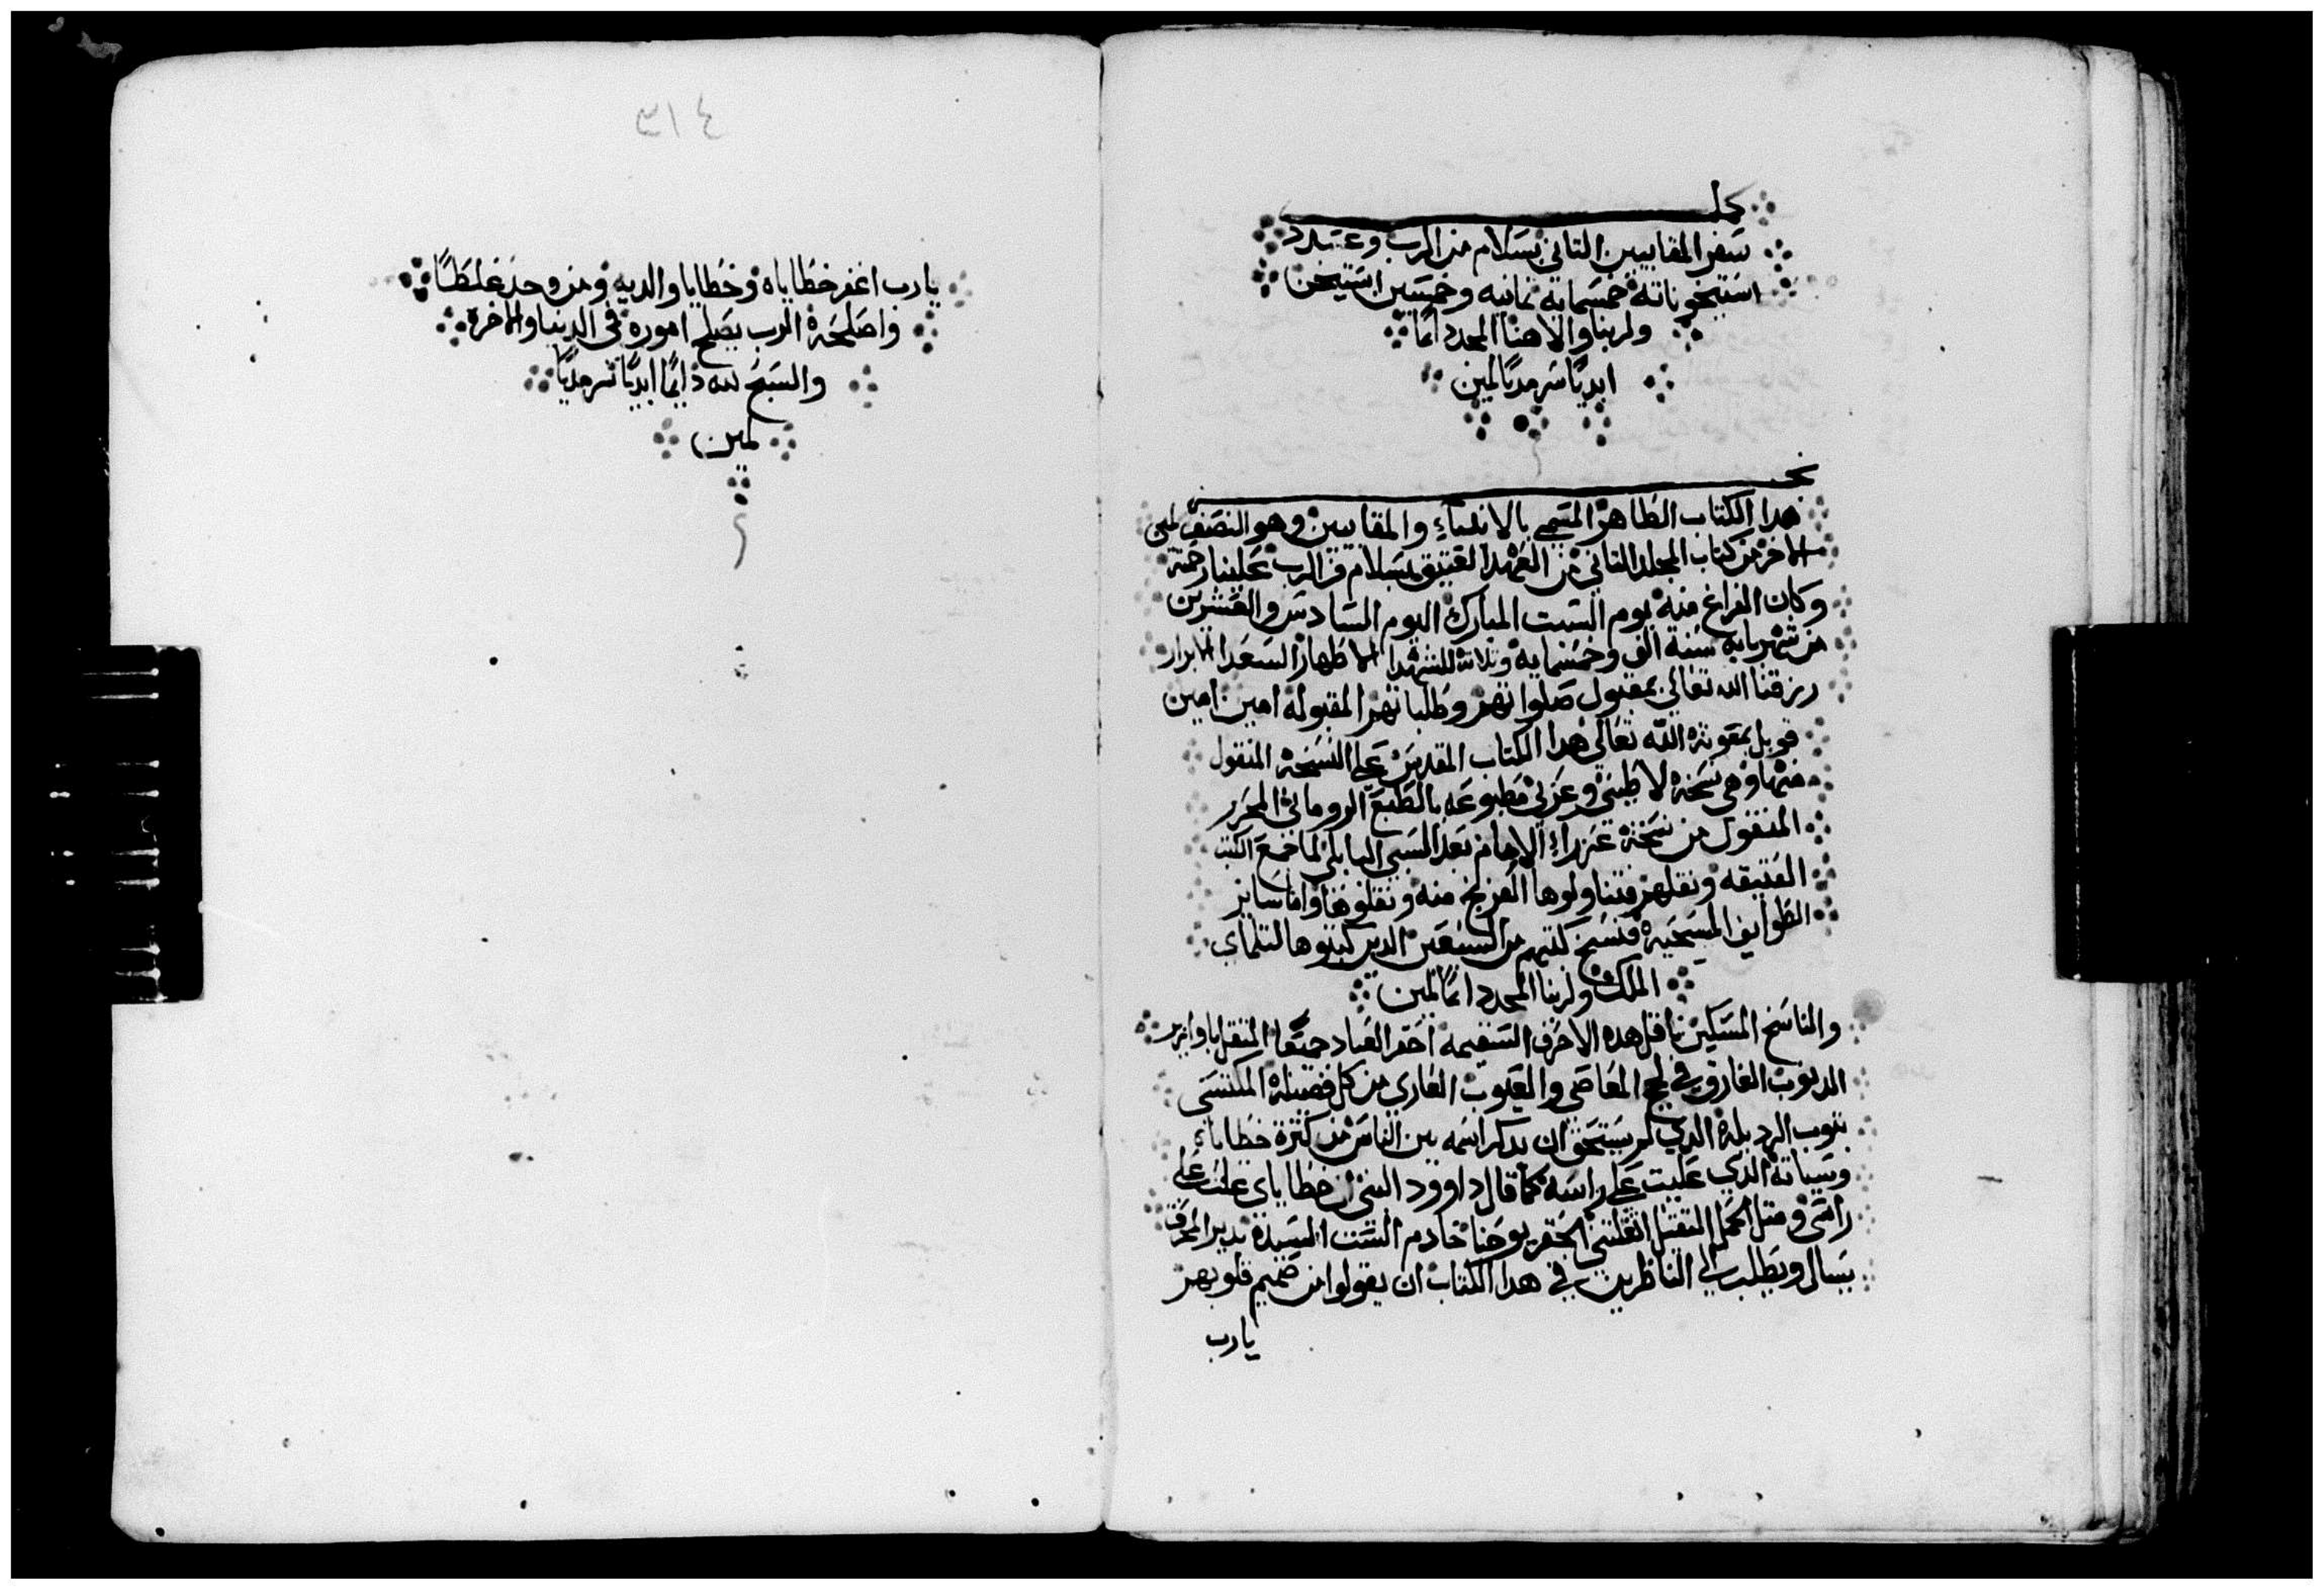 كمل
سفر المقابيين التاني بسلام من الرب وعتدد
استيخوناته خمسماية تمانيه وخمسين استيخن
ولربنا والاهنا المجد دايمًا
ابديًا سرمديًا امين
نجز
هدا الكتاب الطاهر المسمى بالانبياء والمقابيين وهو النصف
الاخر من كتاب المجلد التاني من العهد العتيق بسلام من الرب علينا رحمته
وكان الفراغ منه يوم السبت المبارك اليوم السادس والعشرين
من شهر بابه سنة الف وخمسمايه وتلاته للشهدا الاطهار السعدا الابرار
رزقنا الله تعالى بمقبول صلواتهم وطلباتهم المقبوله امين امين
قوبل بمعونة الله تعالى هدا الكتاب المقدس على النسخة المنقول
منها وهي نسخة لاطيني وعربي مطبوعه بالطبع الروماني المحرر
المنقول من نسخة عزراء الامام بعد السبي البابلي لما جمع الكتب
العتيقه ونقلهم وتناولوها الفرنج منه ونقلوها واما ساير
الطوايف المسيحية فنسخ كتبهم من السبعين الدين كتبوها لتلماي
الملك ولربنا المجد دايمًا امين
والناسخ المسكين ناقل هده الاحرف السقيمه احقر العباد جميعًا المتقل باوازير
الدنوب الغارق في لجج المعاصي والعيوب العاري من كل فضيلة المكتسي
بتوب الرديلة الدي لم يستحق ان يدكر اسمه بين الناس من كترة خطاياه
وسياته الدي عليت على راسه كما قال داوود النبي ان خطاياي علت على
راسي ومتل الحمل التقيل اتقلتني الحقير يوحنا خادم الست السيدة بدير المحرق
يسال ويطلب الى الناظرين في هدا الكتاب ان يقولوا من صميم قلوبهم
يارب
٤١٣
يارب اغفر خطاياه وخطايا والديه ومن وجد غلطًا
واصلحه الرب يصلح اموره في الدنيا والاخرة
والسبح لله دايمًا ابديًا سرمديًا
امين